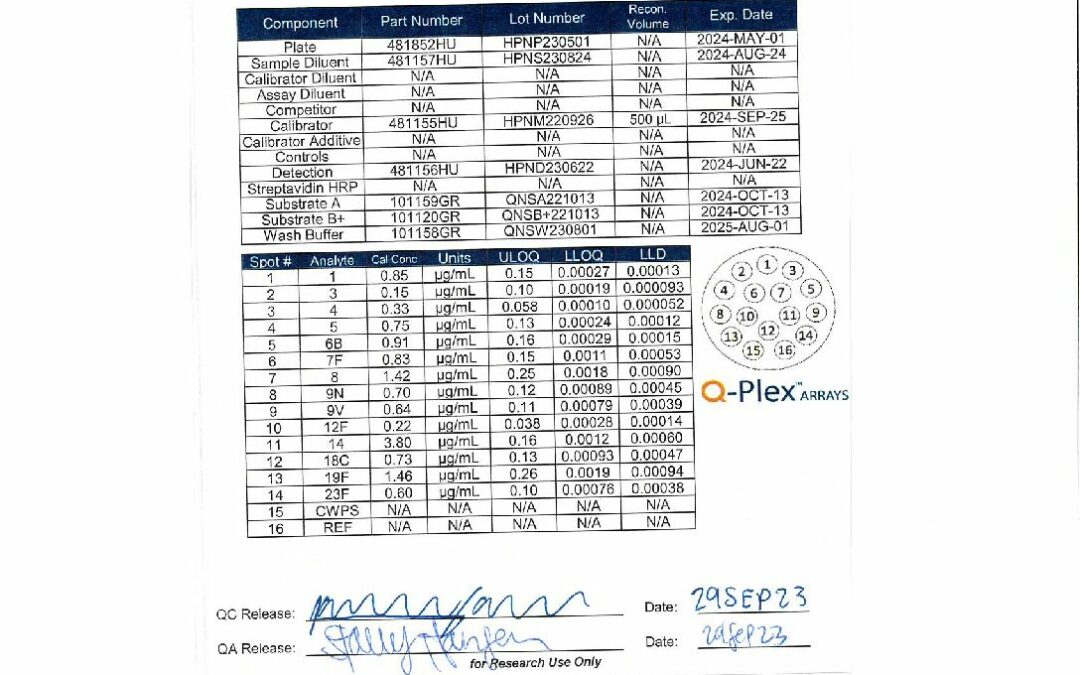 Component Part Number Lot Number Recon. Volume Exp. Date
Plate 481852HU HPNP230501 N/A 2024-MAY-01
Sample Diluent 481157HU HPNS230824 N/A 2024-AUG-24
Calibrator Diluent N/A N/A N/A N/A
Assay Diluent N/A N/A N/A N/A
Competitor N/A N/A N/A N/A
Calibrator 481155HU HPNM220926 500 µL 2024-SEP-25
Calibrator Additive N/A N/A N/A N/A
Controls N/A N/A N/A N/A
Detection 481156HU HPND230622 N/A 2024-JUN-22
Streptavidin HRP N/A N/A N/A N/A
Substrate A 101159GR QNSA221013 N/A 2024-OCT-13
Substrate B+ 101120GR QNSB+221013 N/A 2024-OCT-13
Wash Buffer 101158GR QNSW230801 N/A 2025-AUG-01
Spot # Analyte Cal Conc Units ULOQ LLOQ LLD
1 1 0.85 µg/mL 0.15 0.00027 0.00013
2 3 0.15 µg/mL 0.10 0.00019 0.000093
3 4 0.33 µg/mL 0.058 0.00010 0.000052
4 5 0.75 µg/mL 0.13 0.00024 0.00012
5 6B 0.91 µg/mL 0.16 0.00029 0.00015
6 7F 0.83 µg/mL 0.15 0.0011 0.00053
7 8 1.42 µg/mL 0.25 0.0018 0.00090
8 9N 0.70 µg/mL 0.12 0.00089 0.00045
9 9V 0.64 µg/mL 0.11 0.00079 0.00039
10 12F 0.22 µg/mL 0.038 0.00028 0.00014
11 14 3.80 µg/mL 0.16 0.0012 0.00060
12 18C 0.73 µg/mL 0.13 0.00093 0.00047
13 19F 1.46 µg/mL 0.26 0.0019 0.00094
14 23F 0.60 µg/mL 0.10 0.00076 0.00038
15 CWPS N/A N/A N/A N/A N/A
16 REF N/A N/A N/A N/A N/A
1
2 3
4 6 7 5
8 10 11 9
13 12 14
15 16
Q-Plex™ ARRAYS
QC Release: Date: 29SEP23
QA Release: Date: 29Sep23
for Research Use Only